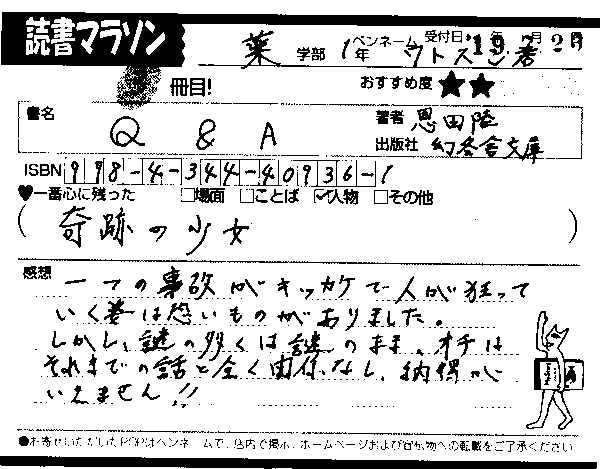 読書マラソン
薬 学部 1年 ペンネーム ワトスン君 受付日 '19年 7月 2日
冊目!
おすすめ度 ★★
書名 Q & A
著者 恩田陸
出版社 幻冬舎文庫
ISBN 978-4-344-40936-1
♥一番心に残った □場面 □ことば ☑人物 □その他
(奇跡の少女)
感想 一つの事故がキッカケで人が狂って
いく姿は恐いものがありました。
しかし、謎の多くは謎のまま、オチは
それまでの話と全く関係なし、納得が
いきません!!
●お寄せいただいたPOPはペンネームで、店内で掲示、ホームページおよび宣伝物への転載をご了承ください